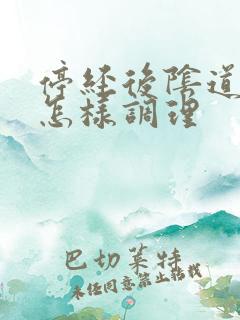 停經後陰道
怎樣調理
巴切萊特
未经同意禁止转载